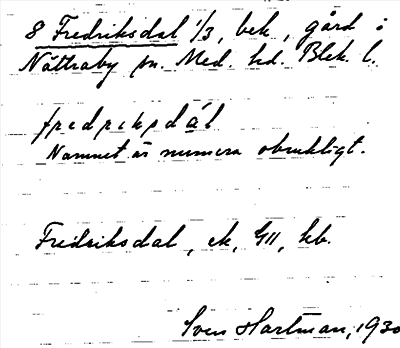 8 Fredriksdal 1/3, bek, gård i
Nättraby sn. Med. hd. Blek. l.
fredrekpdál
Namnet är numera obrukligt.
Fredriksdal, ek, GII, kb.
Sven Hartman, 1930